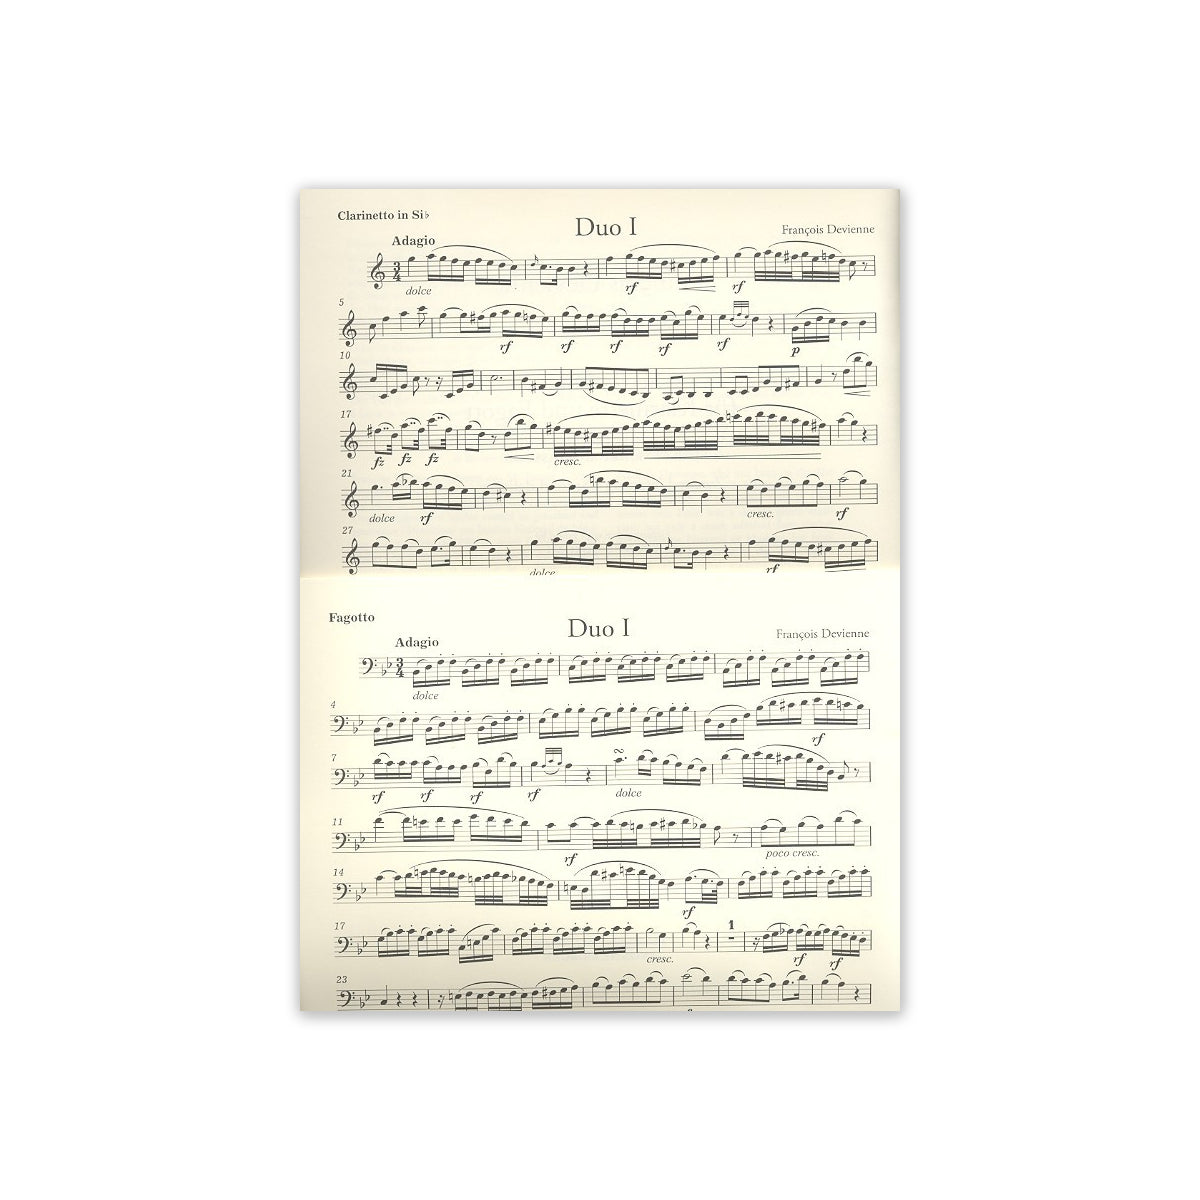 Clarinetto in Si♭
Duo I
François Devienne
Adagio
3
4
dolce
rf
rf
5
rf
rf
rf
rf
rf
p
10
17
fz
fz
fz
cresc.
21
dolce
rf
cresc.
rf
27
dolce
rf
Fagotto
Duo I
François Devienne
Adagio
3
4
dolce
4
rf
7
rf
rf
rf
rf
dolce
11
rf
poco cresc.
14
rf
17
cresc.
1
rf
rf
23